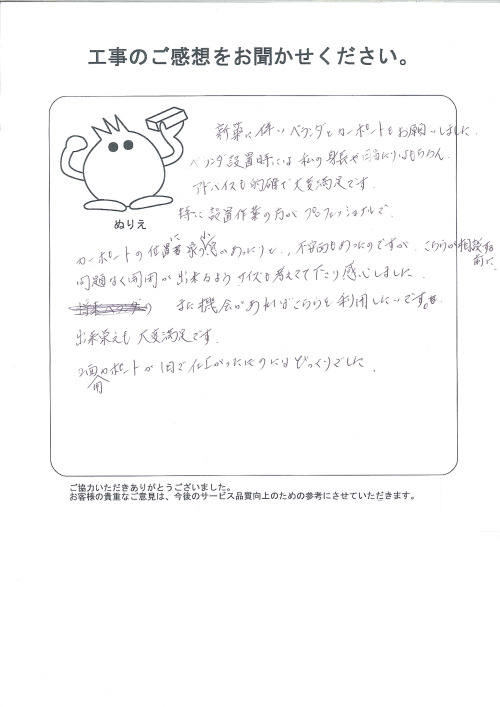 工事のご感想をお聞かせください。
新築に伴いベランダとカーポートをお願いしました。
ベランダ設置時には私の身長や日当たりはもちろん、
アドバイスも的確で大変満足です。
ぬりえ
特に設置作業の方がプロフェッショナルで、
カーポートの位置に があったりと、不安面もあったのですが、こちらが相談する前に、
問題なく開閉が出来るようサイズも考えて下さり感心しました。
また機会があればこちらを利用したいです。
出来栄えも大変満足です。
2面用カーポートが1日で仕上がったのにはびっくりでした。
ご協力いただきありがとうございました。
お客様の貴重なご意見は、今後のサービス品質向上のための参考にさせていただきます。